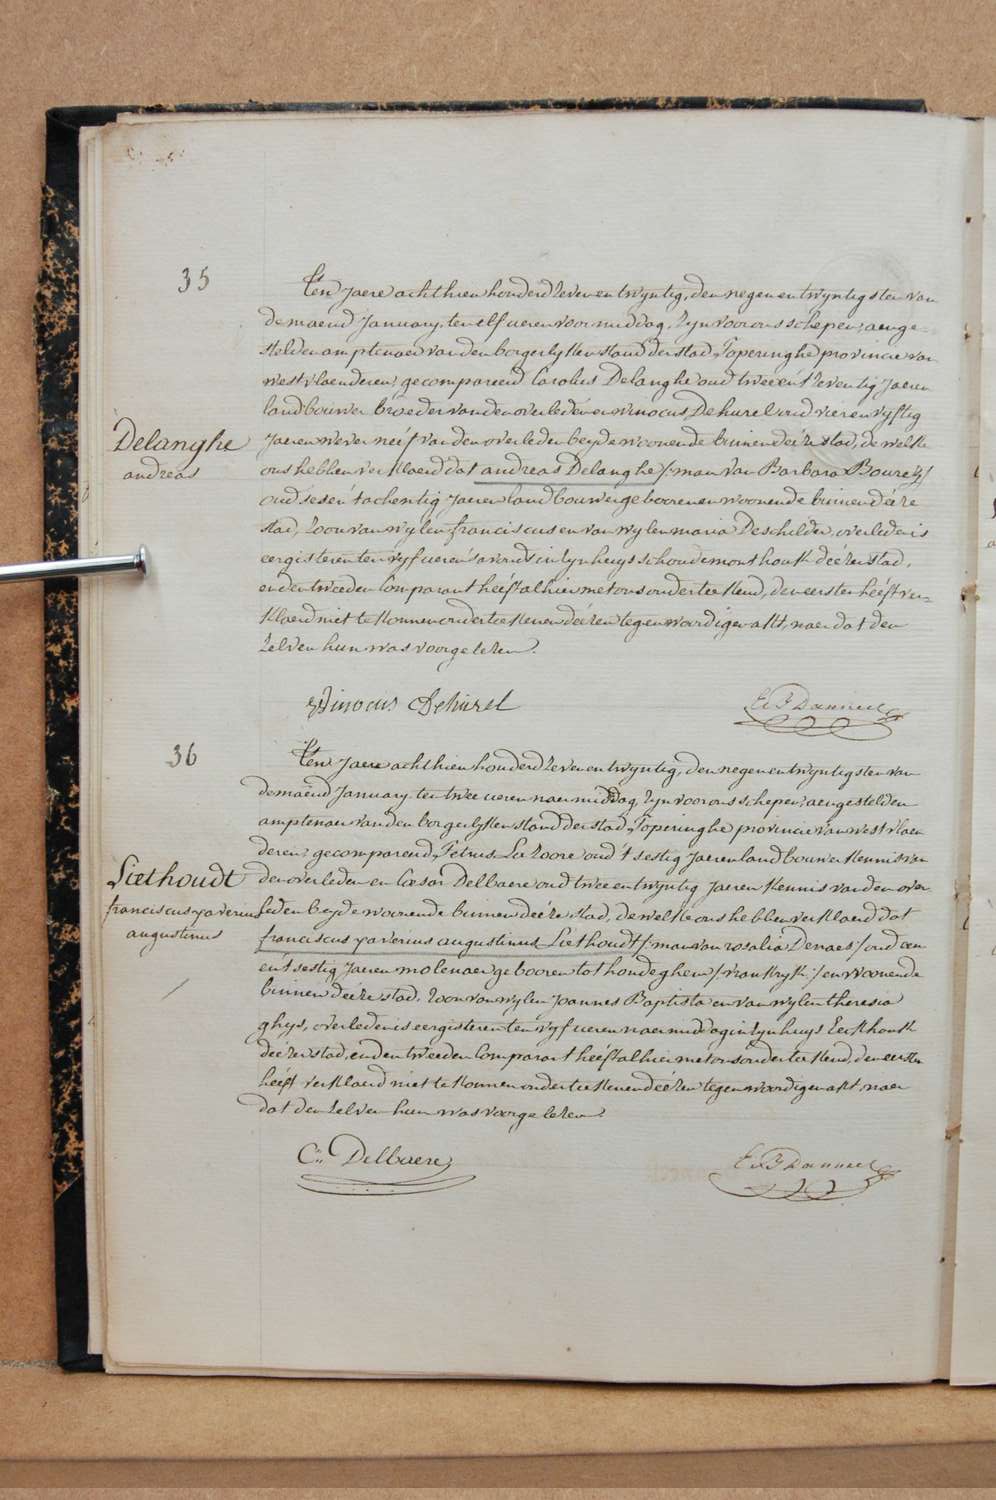 35
Ten jaere achthien honderd zeven en twyntig, den negen en twyntigsten van
de maend January, ten elf ueren voormiddag, zyn voor ons schepen, aenge-
stelden amptenaer van den borgerlyken stand der stad Poperinghe provincie van
westvlaenderen, gecompareerd Carolus Delanghe oud twee en t'zeventig jaeren
landbouwer broeder van den overledenen winocus Dehurel oud vier en vyftig
Delanghe
andreas
jaeren wever neéf van den overleden beyde woonende binnen deéze stad, de welke
ons hebben verklaerd dat andreas Delanghe /:man van Barbara Boureÿ:/
oud ses en t'achentig jaeren landbouwer geboren en woonende binnen deéze
stad, zoon van wylen franciscus en van wylen maria Deschilder, overleden is
eergisteren ten vyf ueren s'avonds in zyn huys schoudemonthouk deézer stad,
en den tweeden Comparant heéft alhier met ons onderteekend, den eersten heéft ver-
klaerd niet te konnen onderteekenen deézen tegenwoordigen akt, naer dat den
zelven hun was voorgelezen.
Winocus Dehurel
36
Ten jaere achthien honderd zeven en twyntig, den negen en twyntigsten van
de maend January ten twee ueren naermiddag, zyn voor ons schepen, aengestelden
amptenaer van den borgerlyken stand der stad Poperinghe provincie van westvlaen
deren, gecompareerd Petrus Lazoore oud t'sestig jaeren landbouwer kennis van
Liethoudt
franciscus xaverius
augustinus
den overleden en Cæsar Delbaere oud twee en twyntig jaeren kennis van den over
leden beyde woonende binnen deéze stad, de welke ons hebben verklaerd dat
franciscus xaverius augustinus Liethoudt /:man van rosalia Denaes:/ oud een
en t'sestig jaeren molenaer geboren tot hondeghem /:vrankryk:/ en woonende
binnen deéze stad, zoon van wylen Joannes Baptista en van wylen theresia
ghys, overleden is eergisteren ten vyf ueren naermiddag in zyn huys Eeckhouk
deézer stad, en den tweeden Comparant heéft alhier met ons onderteekend, den eersten
heéft verklaerd niet te konnen onderteekenen deézen tegenwoordigen akt, naer
dat den zelven hun was voorgelezen.
Cr. Delbaere